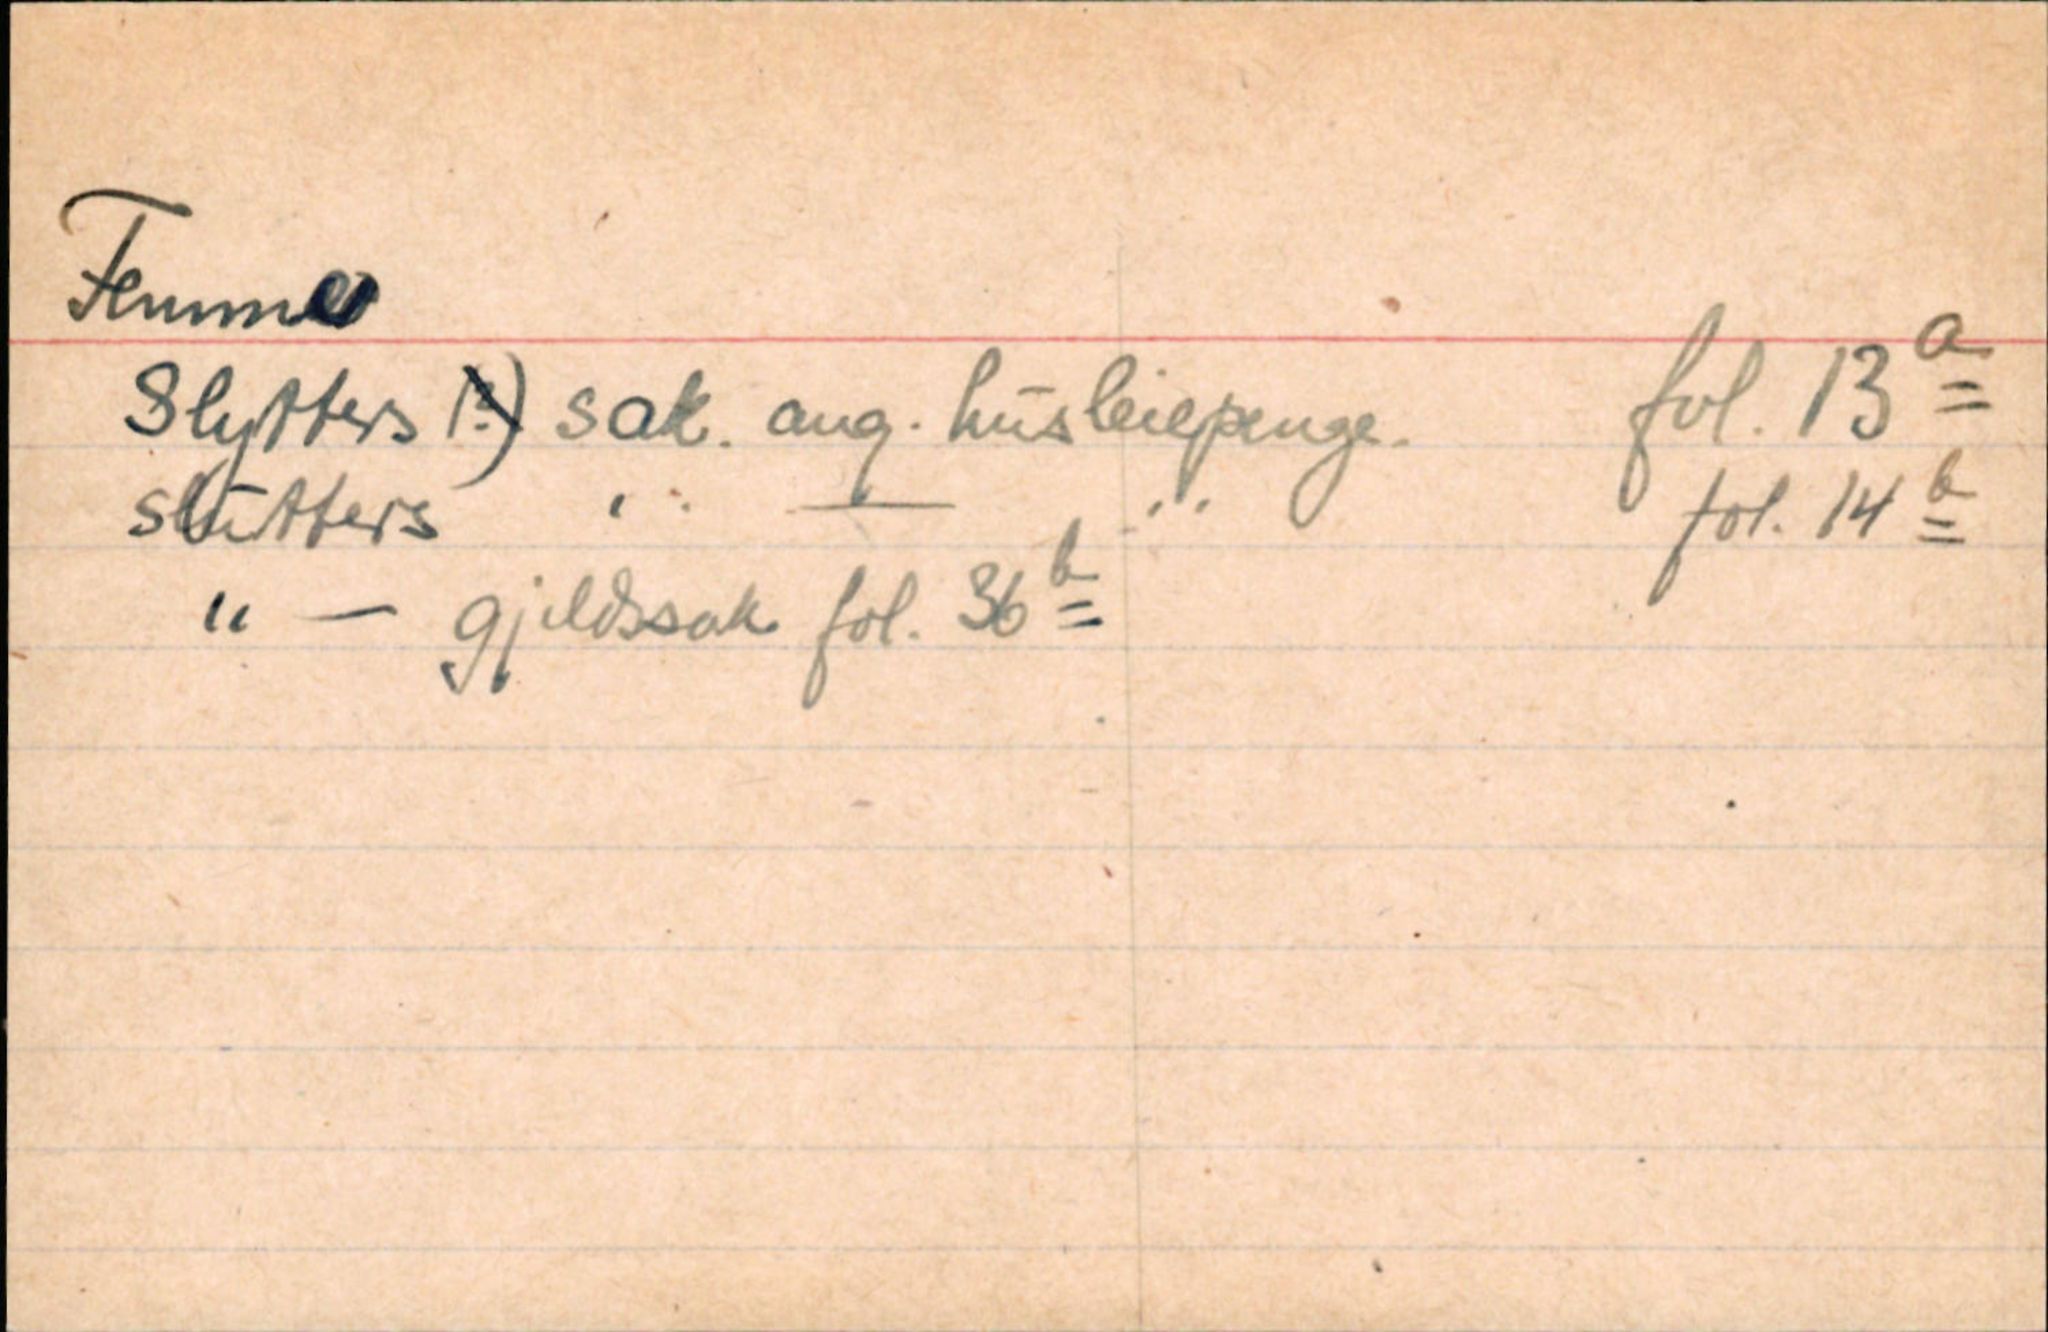 Femmer
Slytters (?) sak. ang. husleiepenge. fol. 13 a
slutters " — " fol. 14 b
" — gjeldssak fol. 36 b